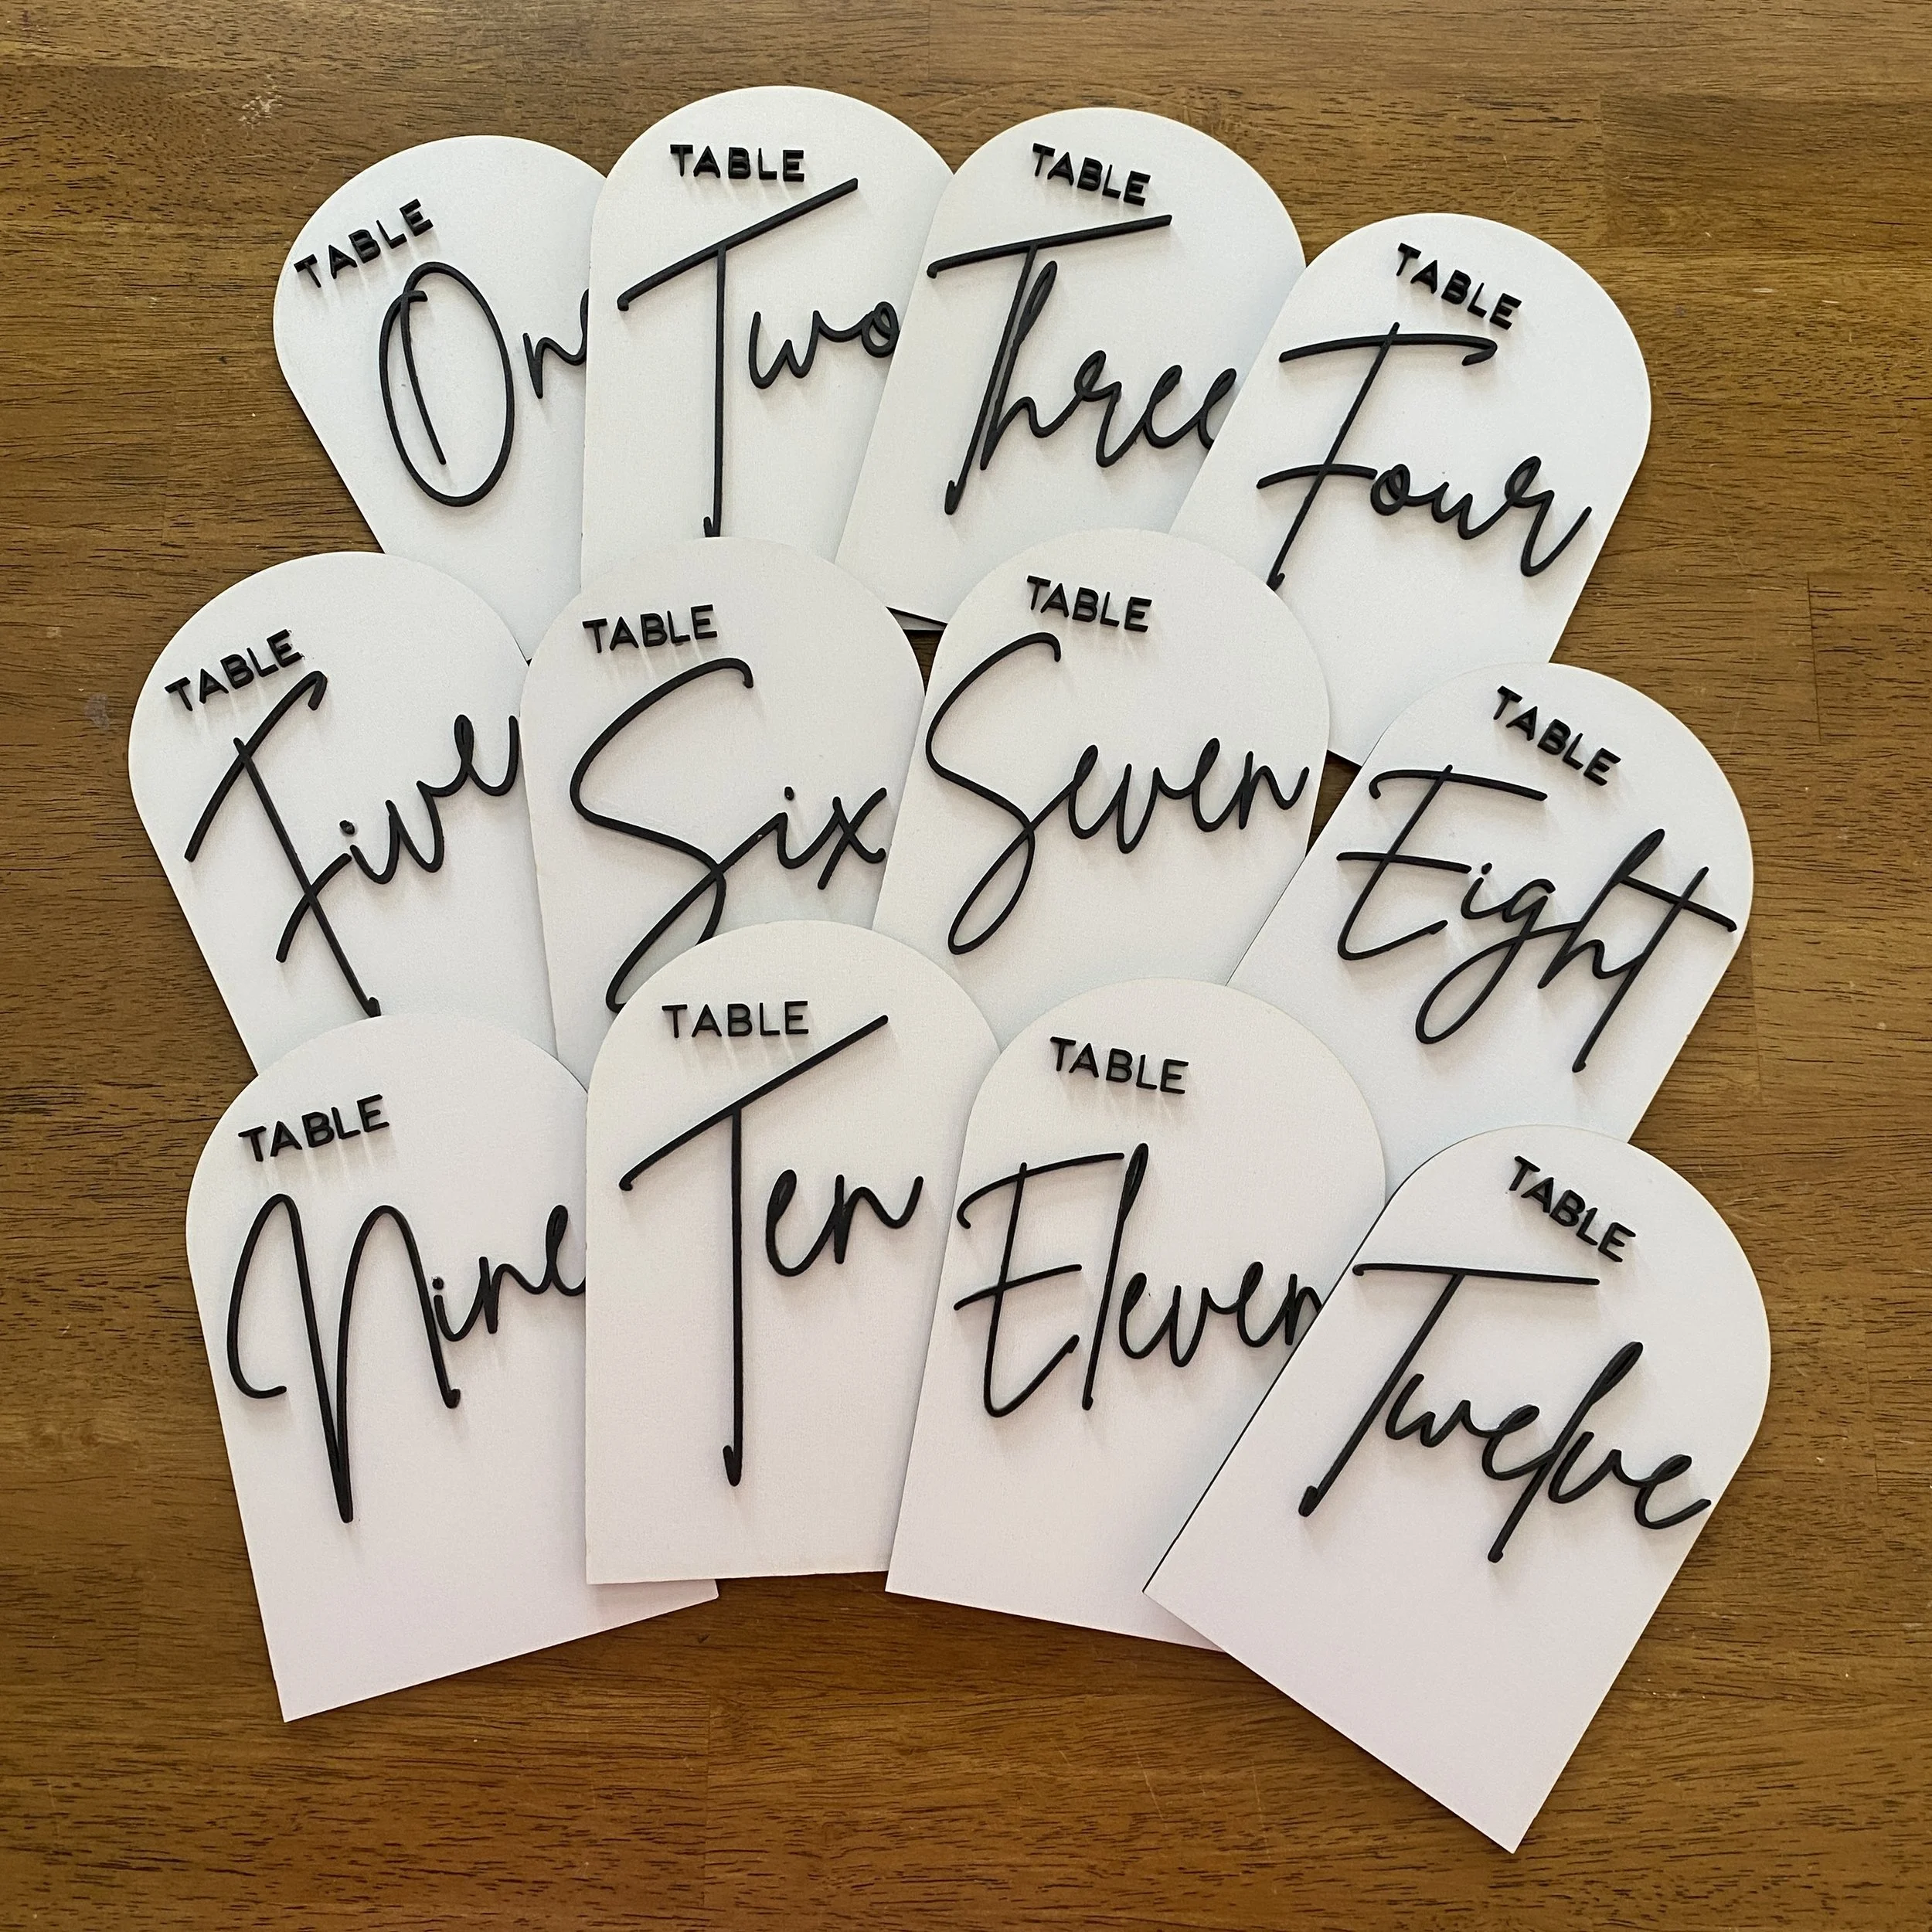 TABLE
On
TABLE
Two
TABLE
Three
TABLE
Four
TABLE
Five
TABLE
Six
TABLE
Seven
TABLE
Eight
TABLE
Nine
TABLE
Ten
TABLE
Eleven
TABLE
Twelve